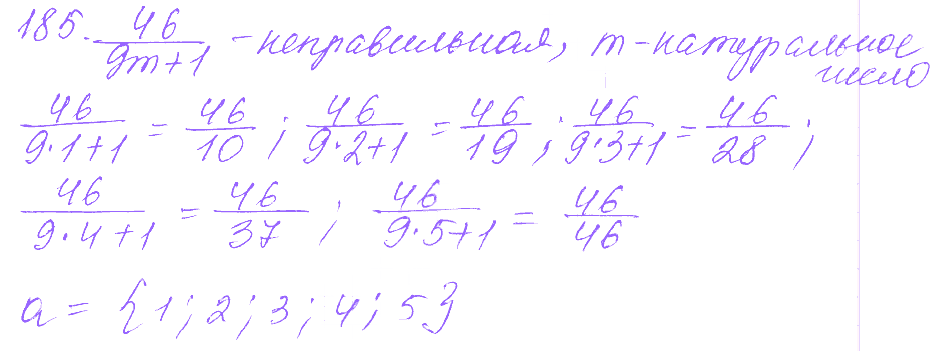 185. 46/(9m+1) - неправильная, m - натуральное число
46/(9·1+1) = 46/10 ; 46/(9·2+1) = 46/19 ; 46/(9·3+1) = 46/28 ;
46/(9·4+1) = 46/37 ; 46/(9·5+1) = 46/46
a = {1; 2; 3; 4; 5}